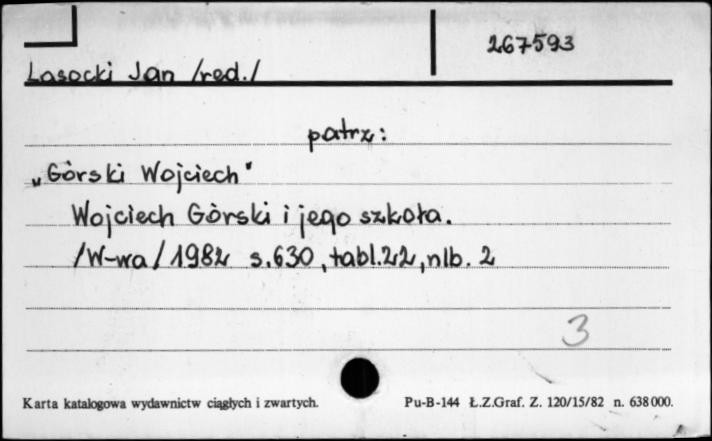 267593
Lasocki Jan /red./
patrz:
„Górski Wojciech"
Wojciech Górski i jego szkoła.
/W-wa/ 1982 s.630, tabl.22, nlb. 2
3
Karta katalogowa wydawnictw ciągłych i zwartych. Pu-B-144 Ł.Z.Graf. Z. 120/15/82 n. 638 000.